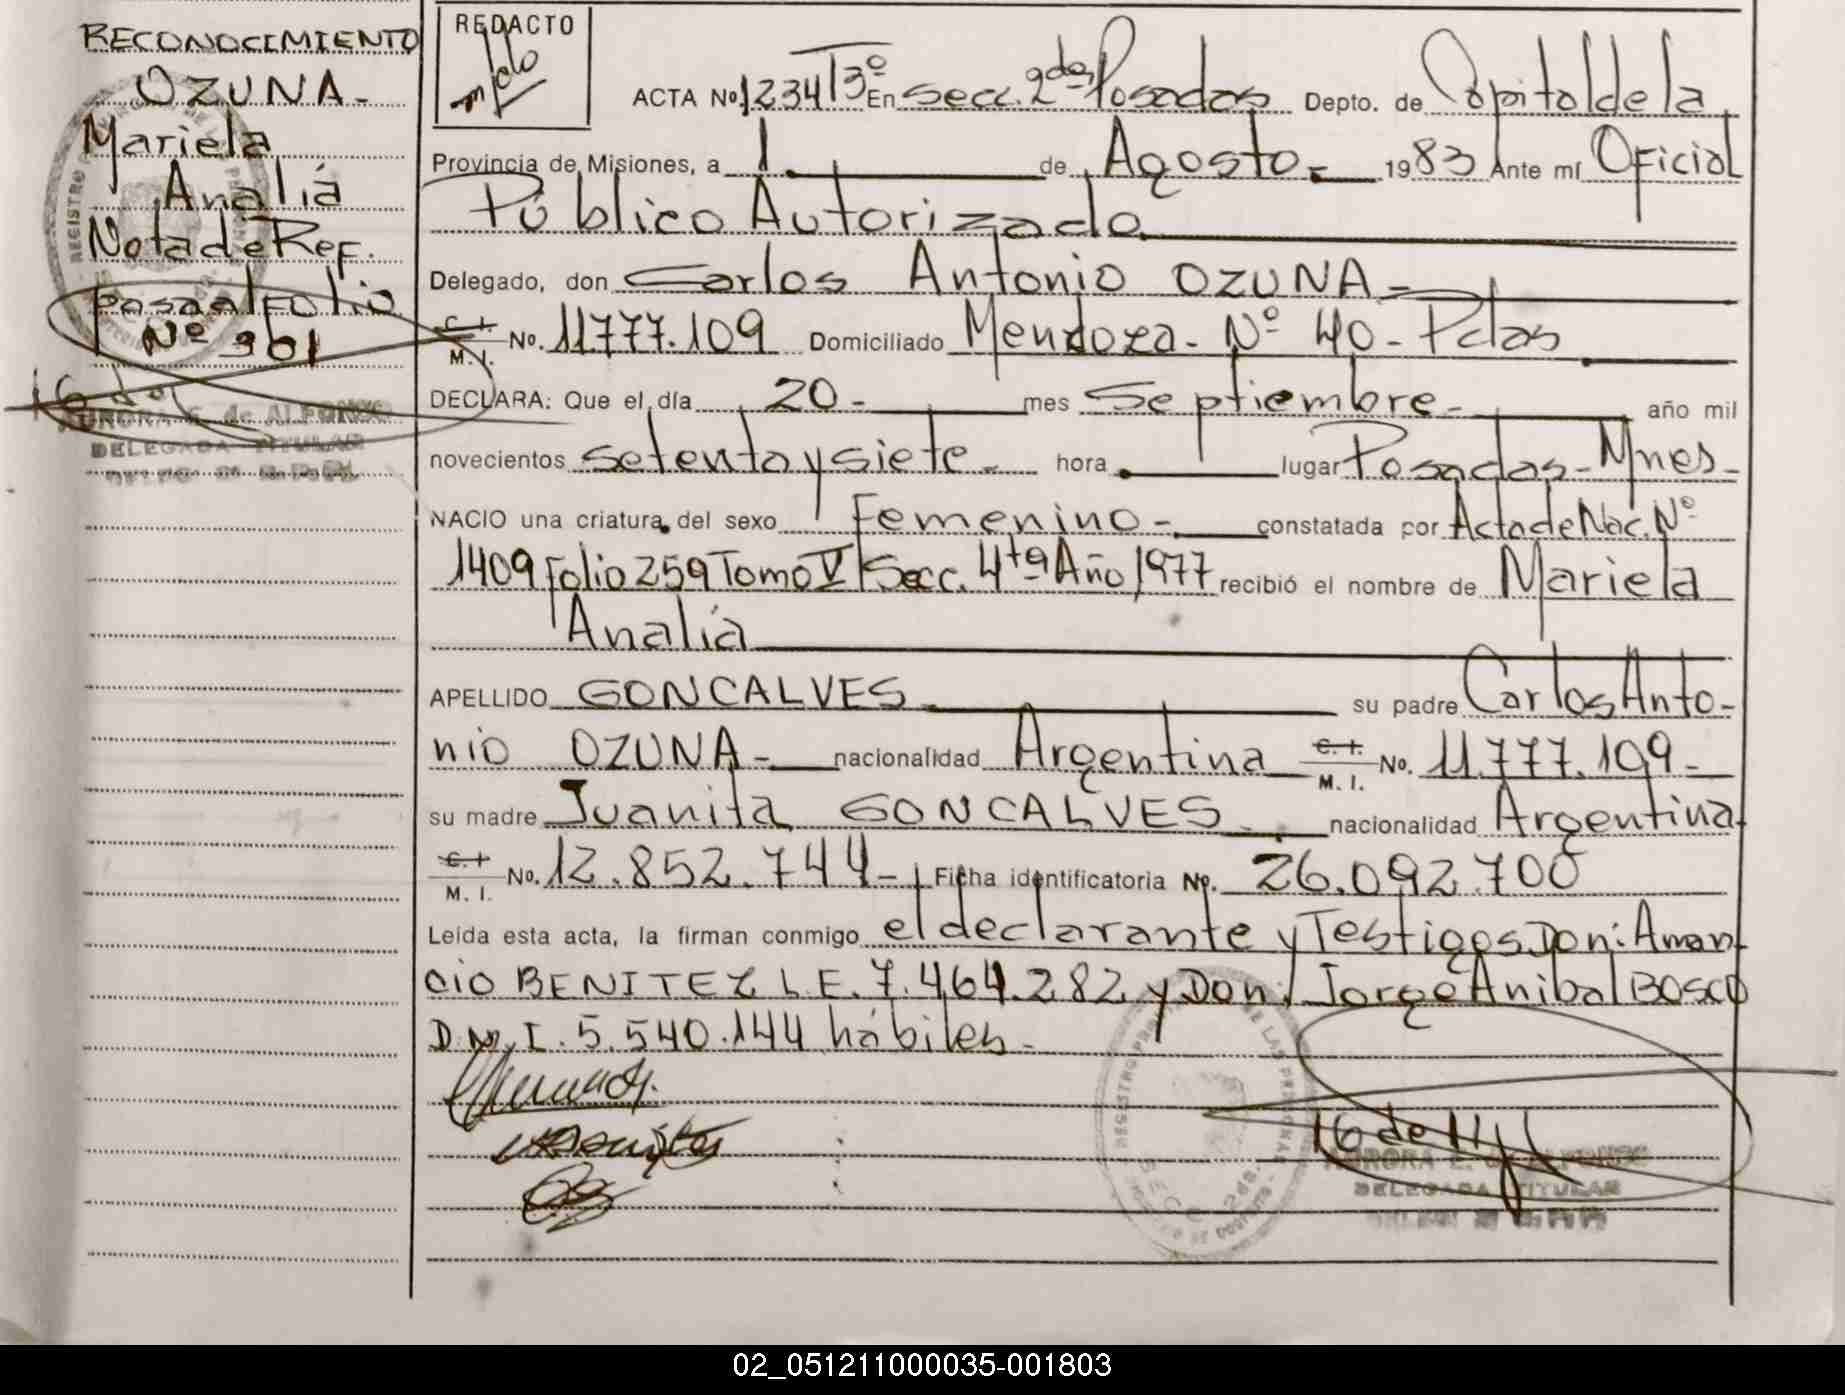 RECONOCIMIENTO
OZUNA-
Mariela
Analiá
Nota de Ref.
pasa al Folio
Nº 301
AURORA E. de ALFONSO
DELEGADA TITULAR
REDACTO
ACTA Nº 1234 T3º En Secc. 2da, Posadas Depto. de Capital de la
Provincia de Misiones, a 1 de Agosto- 1983 Ante mí Oficial
Público Autorizado
Delegado, don Carlos Antonio OZUNA-
C. I. M. I. No. 11.777.109 Domiciliado Mendoza- Nº 40- Pdas
DECLARA: Que el día 20- mes Septiembre- año mil
novecientos setenta y siete- hora lugar Posadas- Mnes-
NACIO una criatura del sexo Femenino- constatada por Acta de Nac. Nº
1409 Folio 259 Tomo V Secc. 4ta Año 1977 recibió el nombre de Mariela
Analiá
APELLIDO GONCALVES su padre Carlos Anto-
nio OZUNA- nacionalidad Argentina C. I. M. I. No. 11.777.109-
su madre Juanita GONCALVES- nacionalidad Argentina
C. I. M. I. No. 12.852.744- Ficha identificatoria No. 26.092.700
Leída esta acta, la firman conmigo el declarante y Testigos Don: Aman-
cio BENITEZ L.E. 7.464.282 y Don: Jorge Anibal BOSCO
D.N.I. 5.540.144 hábiles-
16 de
AURORA E. de ALFONSO
DELEGADA TITULAR
02_051211000035-001803